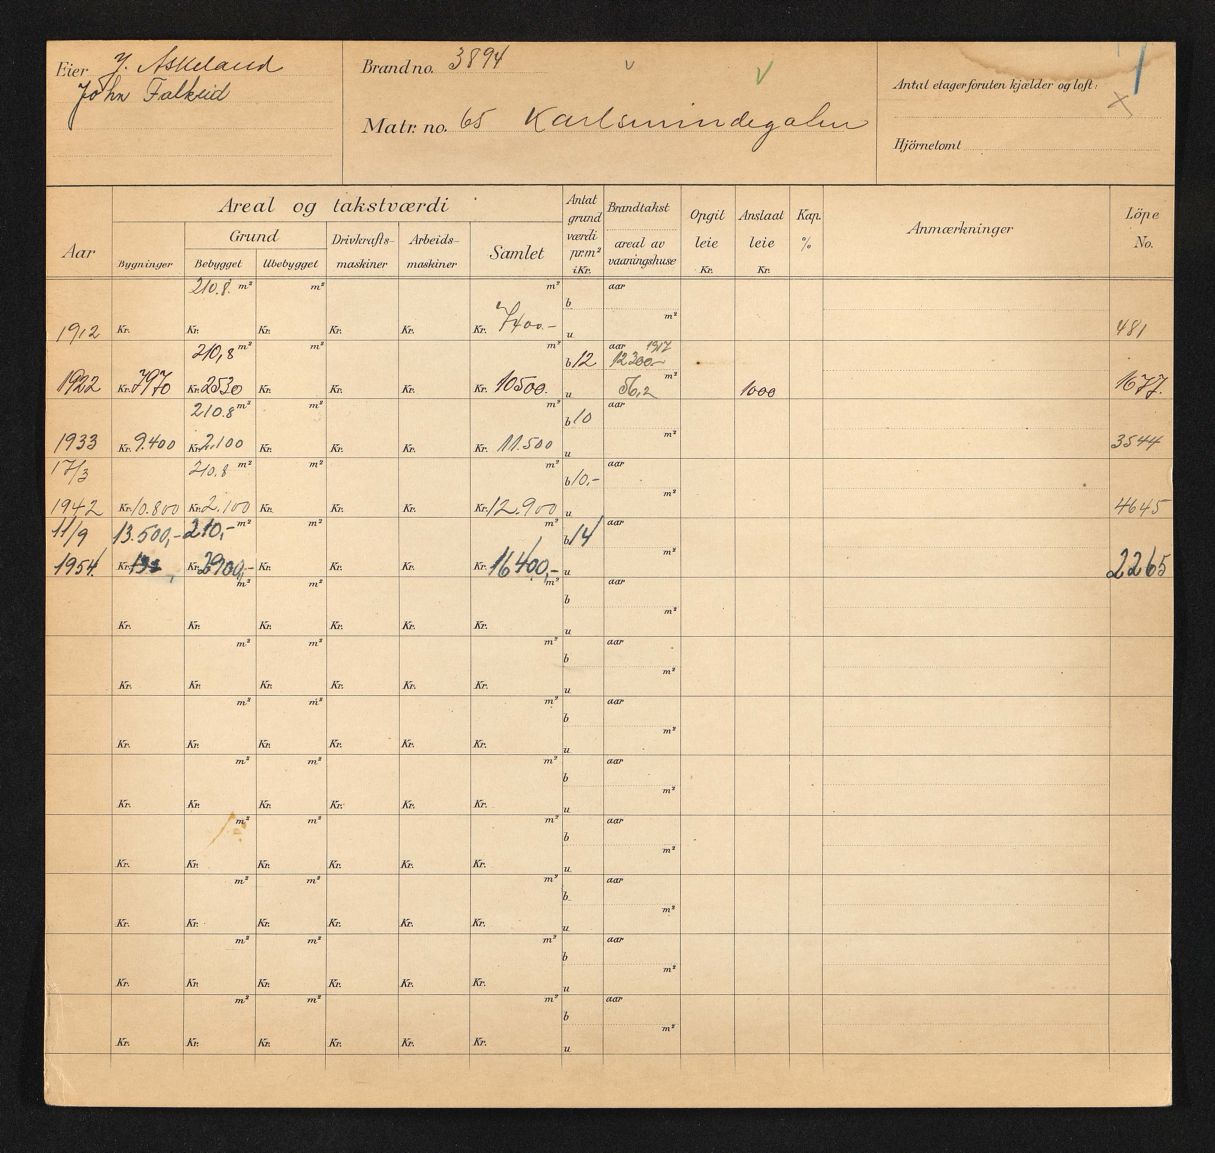 Eier J. Askeland
John Falkeid
Brandno. 3894
Matr. no. 65 Karlsmindegaten
Antal etager foruten kjælder og loft:
Hjörnetomt
Aar
Areal og takstværdi
Bygninger
Grund
Bebygget
Ubebygget
Drivkrafts-
maskiner
Arbeids-
maskiner
Samlet
Antat
grund
værdi
pr.m²
i Kr.
Brandtakst
areal av
vaaningshuse
Opgit
leie
Kr.
Anslaat
leie
Kr.
Kap.
%
Anmærkninger
Löpe
No.
210.8. m² m² m² b aar
1912 Kr. Kr. Kr. Kr. Kr. Kr. 7400.- u m² 481
210,8 m² m² m² b 12 aar 1917 12300.-
1922 Kr. 7970 Kr. 2530 Kr. Kr. Kr. Kr. 10500. u 56,2 m² 1000 1677.
210.8 m² m² m² b 10 aar
1933 Kr. 9.400 Kr. 2.100 Kr. Kr. Kr. Kr. 11.500 u m² 3544
17/3 210.8 m² m² m² b 10,- aar
1942 Kr. 10.800 Kr. 2.100 Kr. Kr. Kr. Kr. 12.900 u m² 4645
11/9 13.500,- 210,- m² m² m² b 14 aar
1954. Kr. Kr. 2900,- Kr. Kr. Kr. Kr. 16400,- u m² 2265
m² m² m² b aar
Kr. Kr. Kr. Kr. Kr. Kr. u m²
m² m² m² b aar
Kr. Kr. Kr. Kr. Kr. Kr. u m²
m² m² m² b aar
Kr. Kr. Kr. Kr. Kr. Kr. u m²
m² m² m² b aar
Kr. Kr. Kr. Kr. Kr. Kr. u m²
m² m² m² b aar
Kr. Kr. Kr. Kr. Kr. Kr. u m²
m² m² m² b aar
Kr. Kr. Kr. Kr. Kr. Kr. u m²
m² m² m² b aar
Kr. Kr. Kr. Kr. Kr. Kr. u m²
m² m² m² b aar
Kr. Kr. Kr. Kr. Kr. Kr. u m²